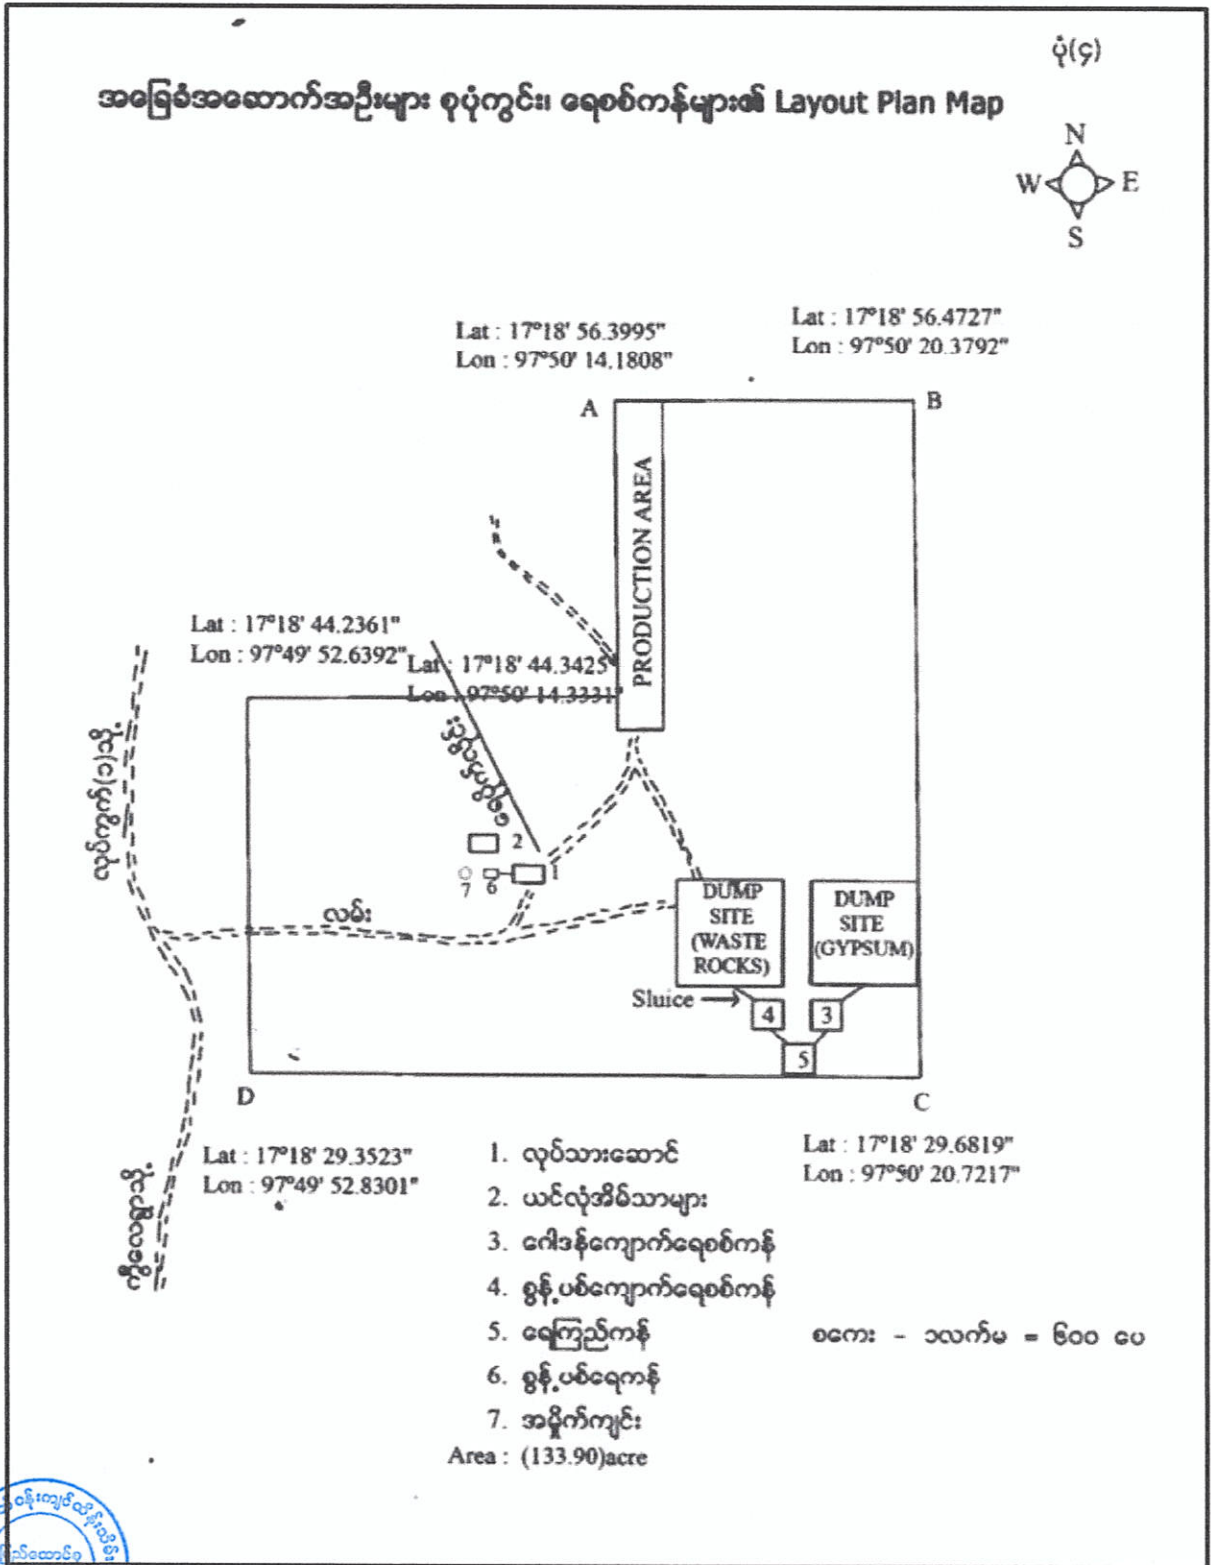 ပုံ(၄)
အခြေခံအဆောက်အဦးများ စုပုံကွင်း၊ ရေစစ်ကန်များ၏ Layout Plan Map
N
W E
S
Lat : 17°18' 56.3995"
Lon : 97°50' 14.1808"
Lat : 17°18' 56.4727"
Lon : 97°50' 20.3792"
A
B
PRODUCTION AREA
Lat : 17°18' 44.2361"
Lon : 97°49' 52.6392"
Lat : 17°18' 44.3425"
Lon : 97°50' 14.3331"
လုပ်ကွက်(၁)သို့
2
1
7 6
လမ်း
DUMP
SITE
(WASTE
ROCKS)
DUMP
SITE
(GYPSUM)
Sluice
4
3
5
D
C
Lat : 17°18' 29.3523"
Lon : 97°49' 52.8301"
Lat : 17°18' 29.6819"
Lon : 97°50' 20.7217"
1. လုပ်သားဆောင်
2. ယင်လုံအိမ်သာများ
3. ဂေါဒန်ကျောက်ရေစစ်ကန်
4. စွန့်ပစ်ကျောက်ရေစစ်ကန်
5. ရေကြည်ကန်
6. စွန့်ပစ်ရေကန်
7. အမှိုက်ကျင်း
စကေး - ၁လက်မ = ၆၀၀ ပေ
Area : (133.90)acre